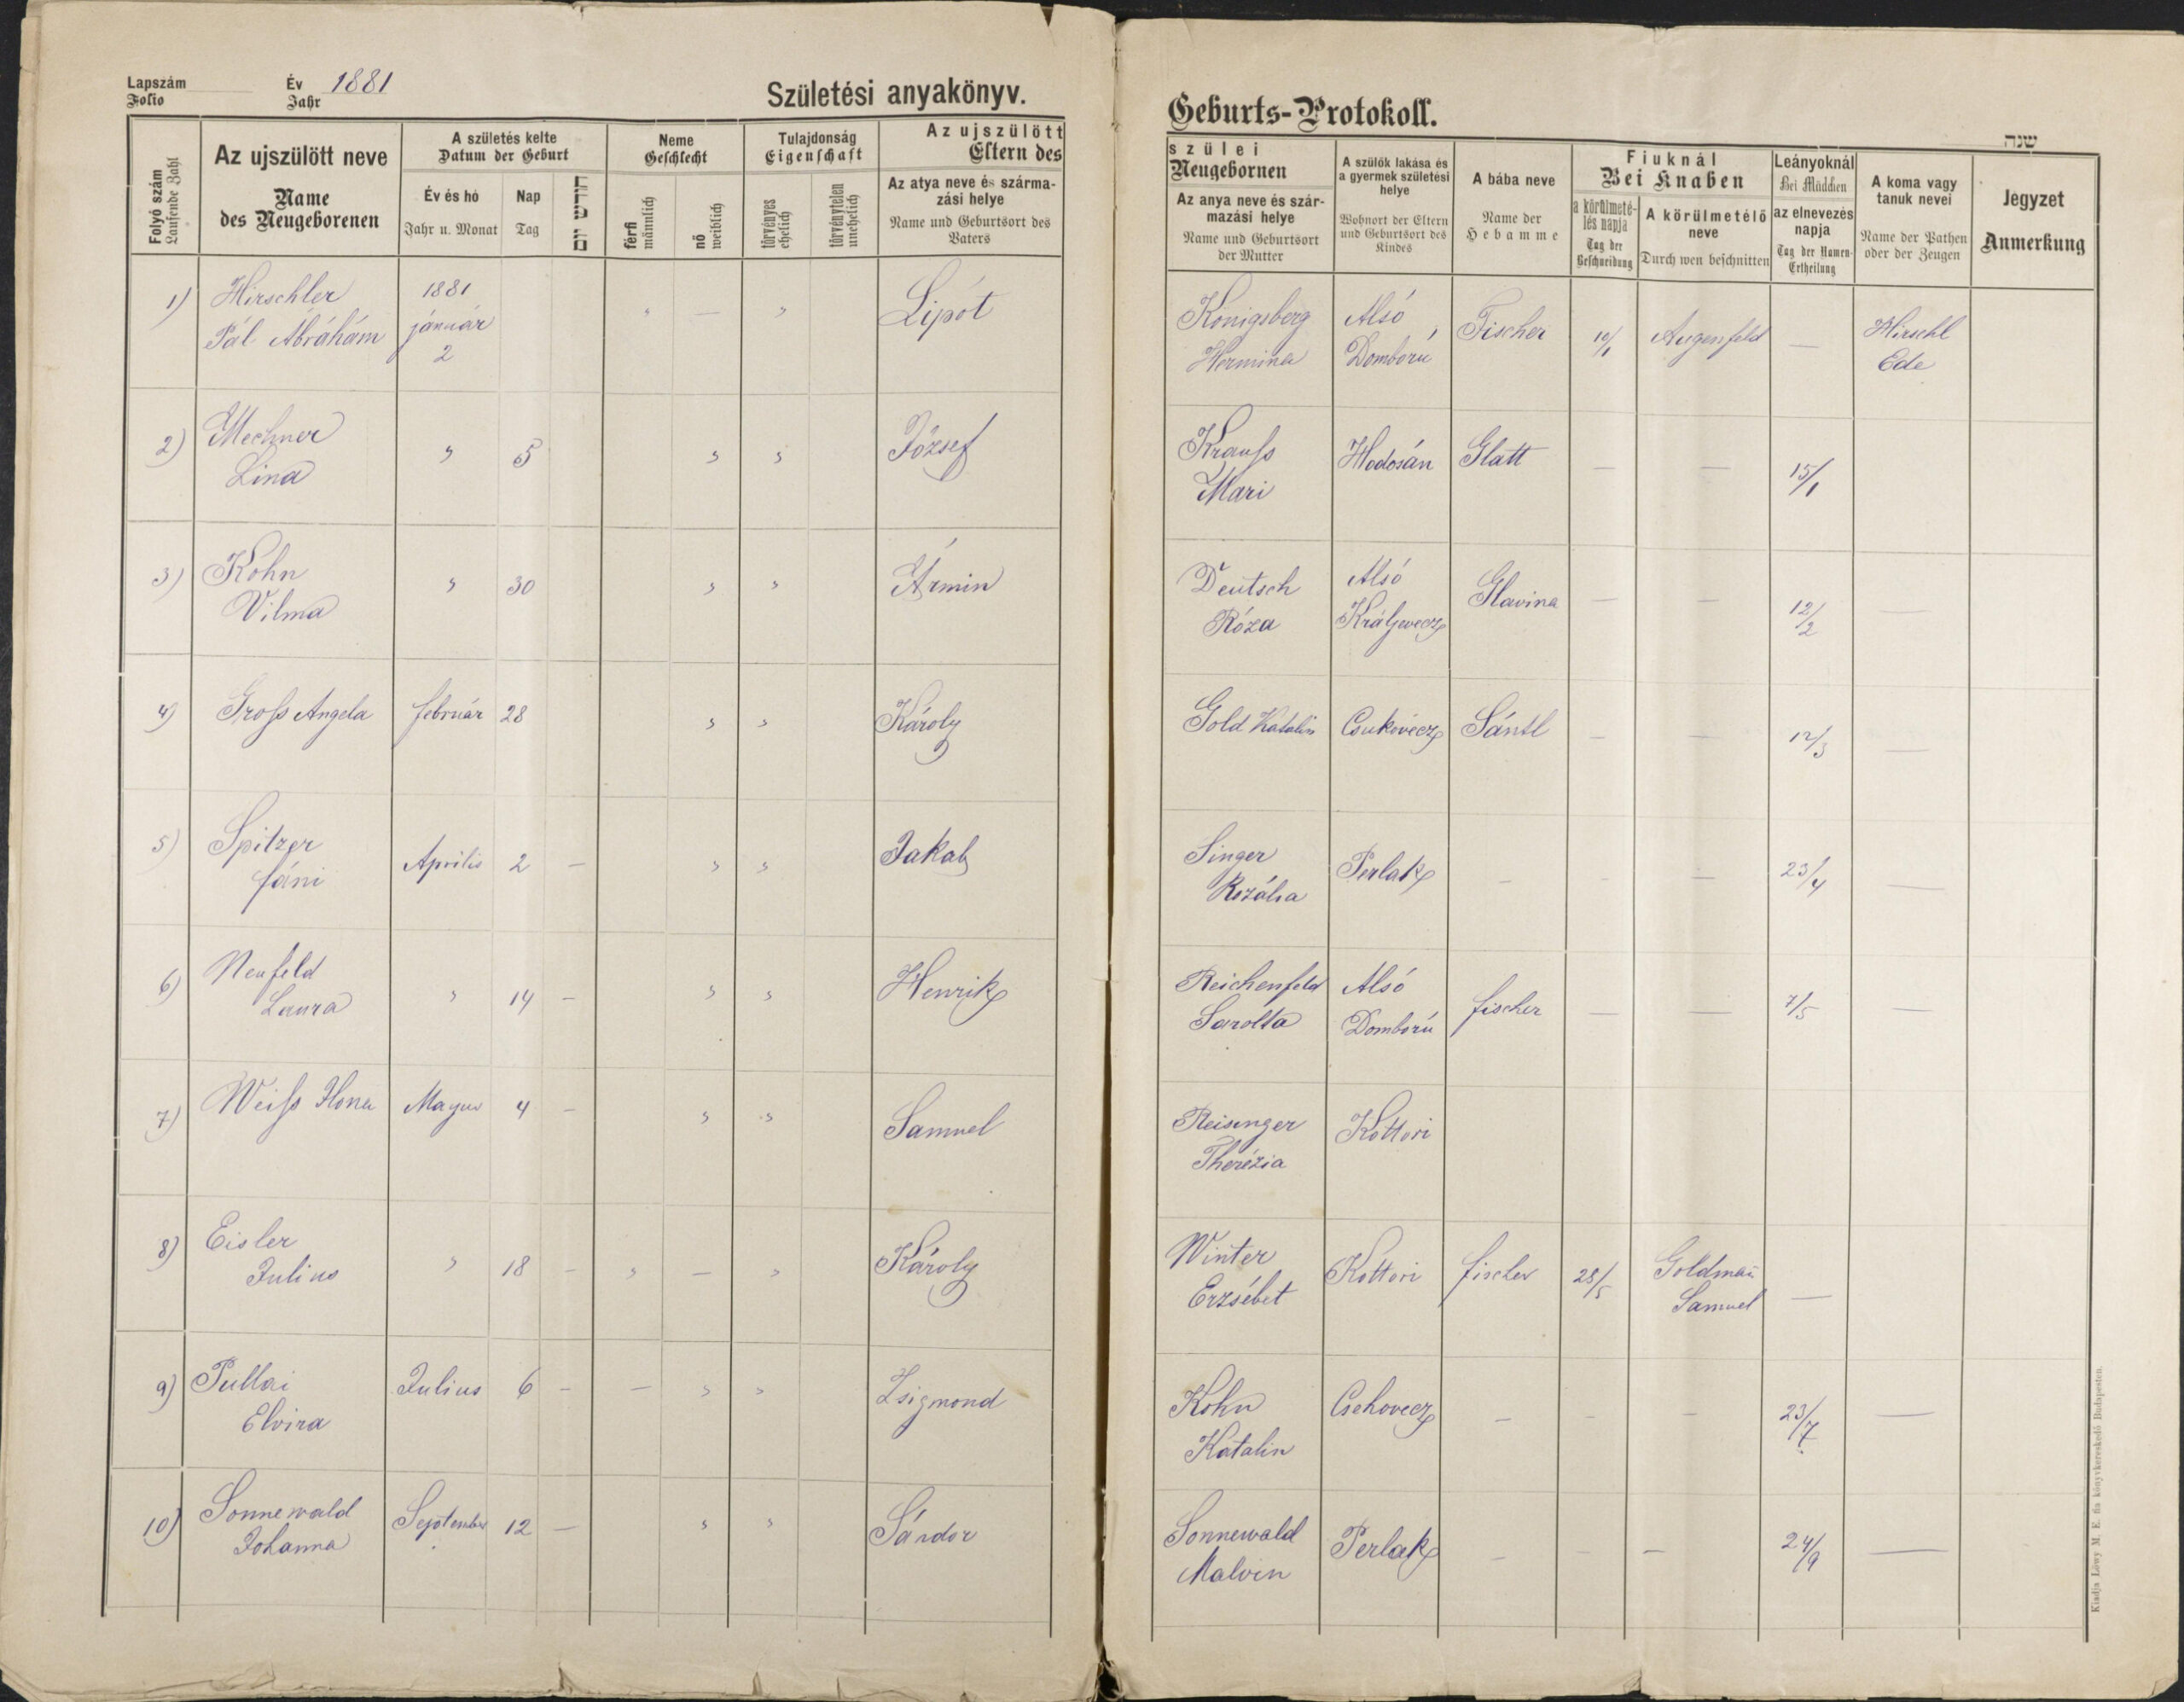 Lapszám
Folio
Év 1881
Jahr
Születési anyakönyv.
Folyó szám
Laufende Zahl
Az ujszülött neve
Name
des Neugeborenen
A születés kelte
Datum der Geburt
Év és hó
Jahr u. Monat
Nap
Tag
חודש יום
Neme
Geschlecht
férfi
männlich
nő
weiblich
Tulajdonság
Eigenschaft
törvényes
ehelich
törvénytelen
unehelich
Az ujszülött
Eltern des
Az atya neve és szárma-
zási helye
Name und Geburtsort des
Vaters
1) Hirschler 1881 " — " Lipót
Pál Ábrahám január
2
2) Mechner " 5 " " József
Lina
3) Kohn " 30 " " Ármin
Vilma
4) Groſs Angela február 28 " " Károly
5) Spitzer Aprilis 2 — " " Jakab
fáni
6) Neufeld " 14 — " " Henrik
Laura
7) Weiſs Ilona Majus 4 — " " Samuel
8) Eisler " 18 — " — " Károly
Julius
9) Pullai Julius 6 — — " " Zsigmond
Elvira
10) Sonnewald September 12 — " " Sándor
Johanna
Geburts-Protokoll.
שנה
szülei
Neugebornen
Az anya neve és szár-
mazási helye
Name und Geburtsort
der Mutter
A szülők lakása és
a gyermek születési
helye
Wohnort der Eltern
und Geburtsort des
Kindes
A bába neve
Name der
Hebamme
Fiuknál
Bei Knaben
a körülmeté-
lés napja
Tag der
Beschneidung
A körülmetélő
neve
Durch wen beschnitten
Leányoknál
Bei Mädchen
az elnevezés
napja
Tag der Namen-
Ertheilung
A koma vagy
tanuk nevei
Name der Pathen
oder der Zeugen
Jegyzet
Anmerkung
Königsberg Alsó Fischer 10/1 Augenfeld — Hirschl
Hermina Domború Ede
Krauſs Hodosán Glatt — — 15/1
Mari
Deutsch Alsó Glavina — — 12/2 —
Róza Králjevecz
Gold Katalin Csukovecz Sántl — — 12/3 —
Singer Perlak — — — 23/4 —
Rozália
Reichenfeld Alsó fischer — — 7/5 —
Sarolta Domború
Reisinger Kottori
Therézia
Winter Kottori fischer 28/5 Goldman̄ —
Erzsébet Samuel
Kohn Csehovecz — — — 23/7 —
Katalin
Sonnewald Perlak — — — 24/9 —
Malvin
Kiadja Löwy M. E. fia könyvkereskedő Budapesten.